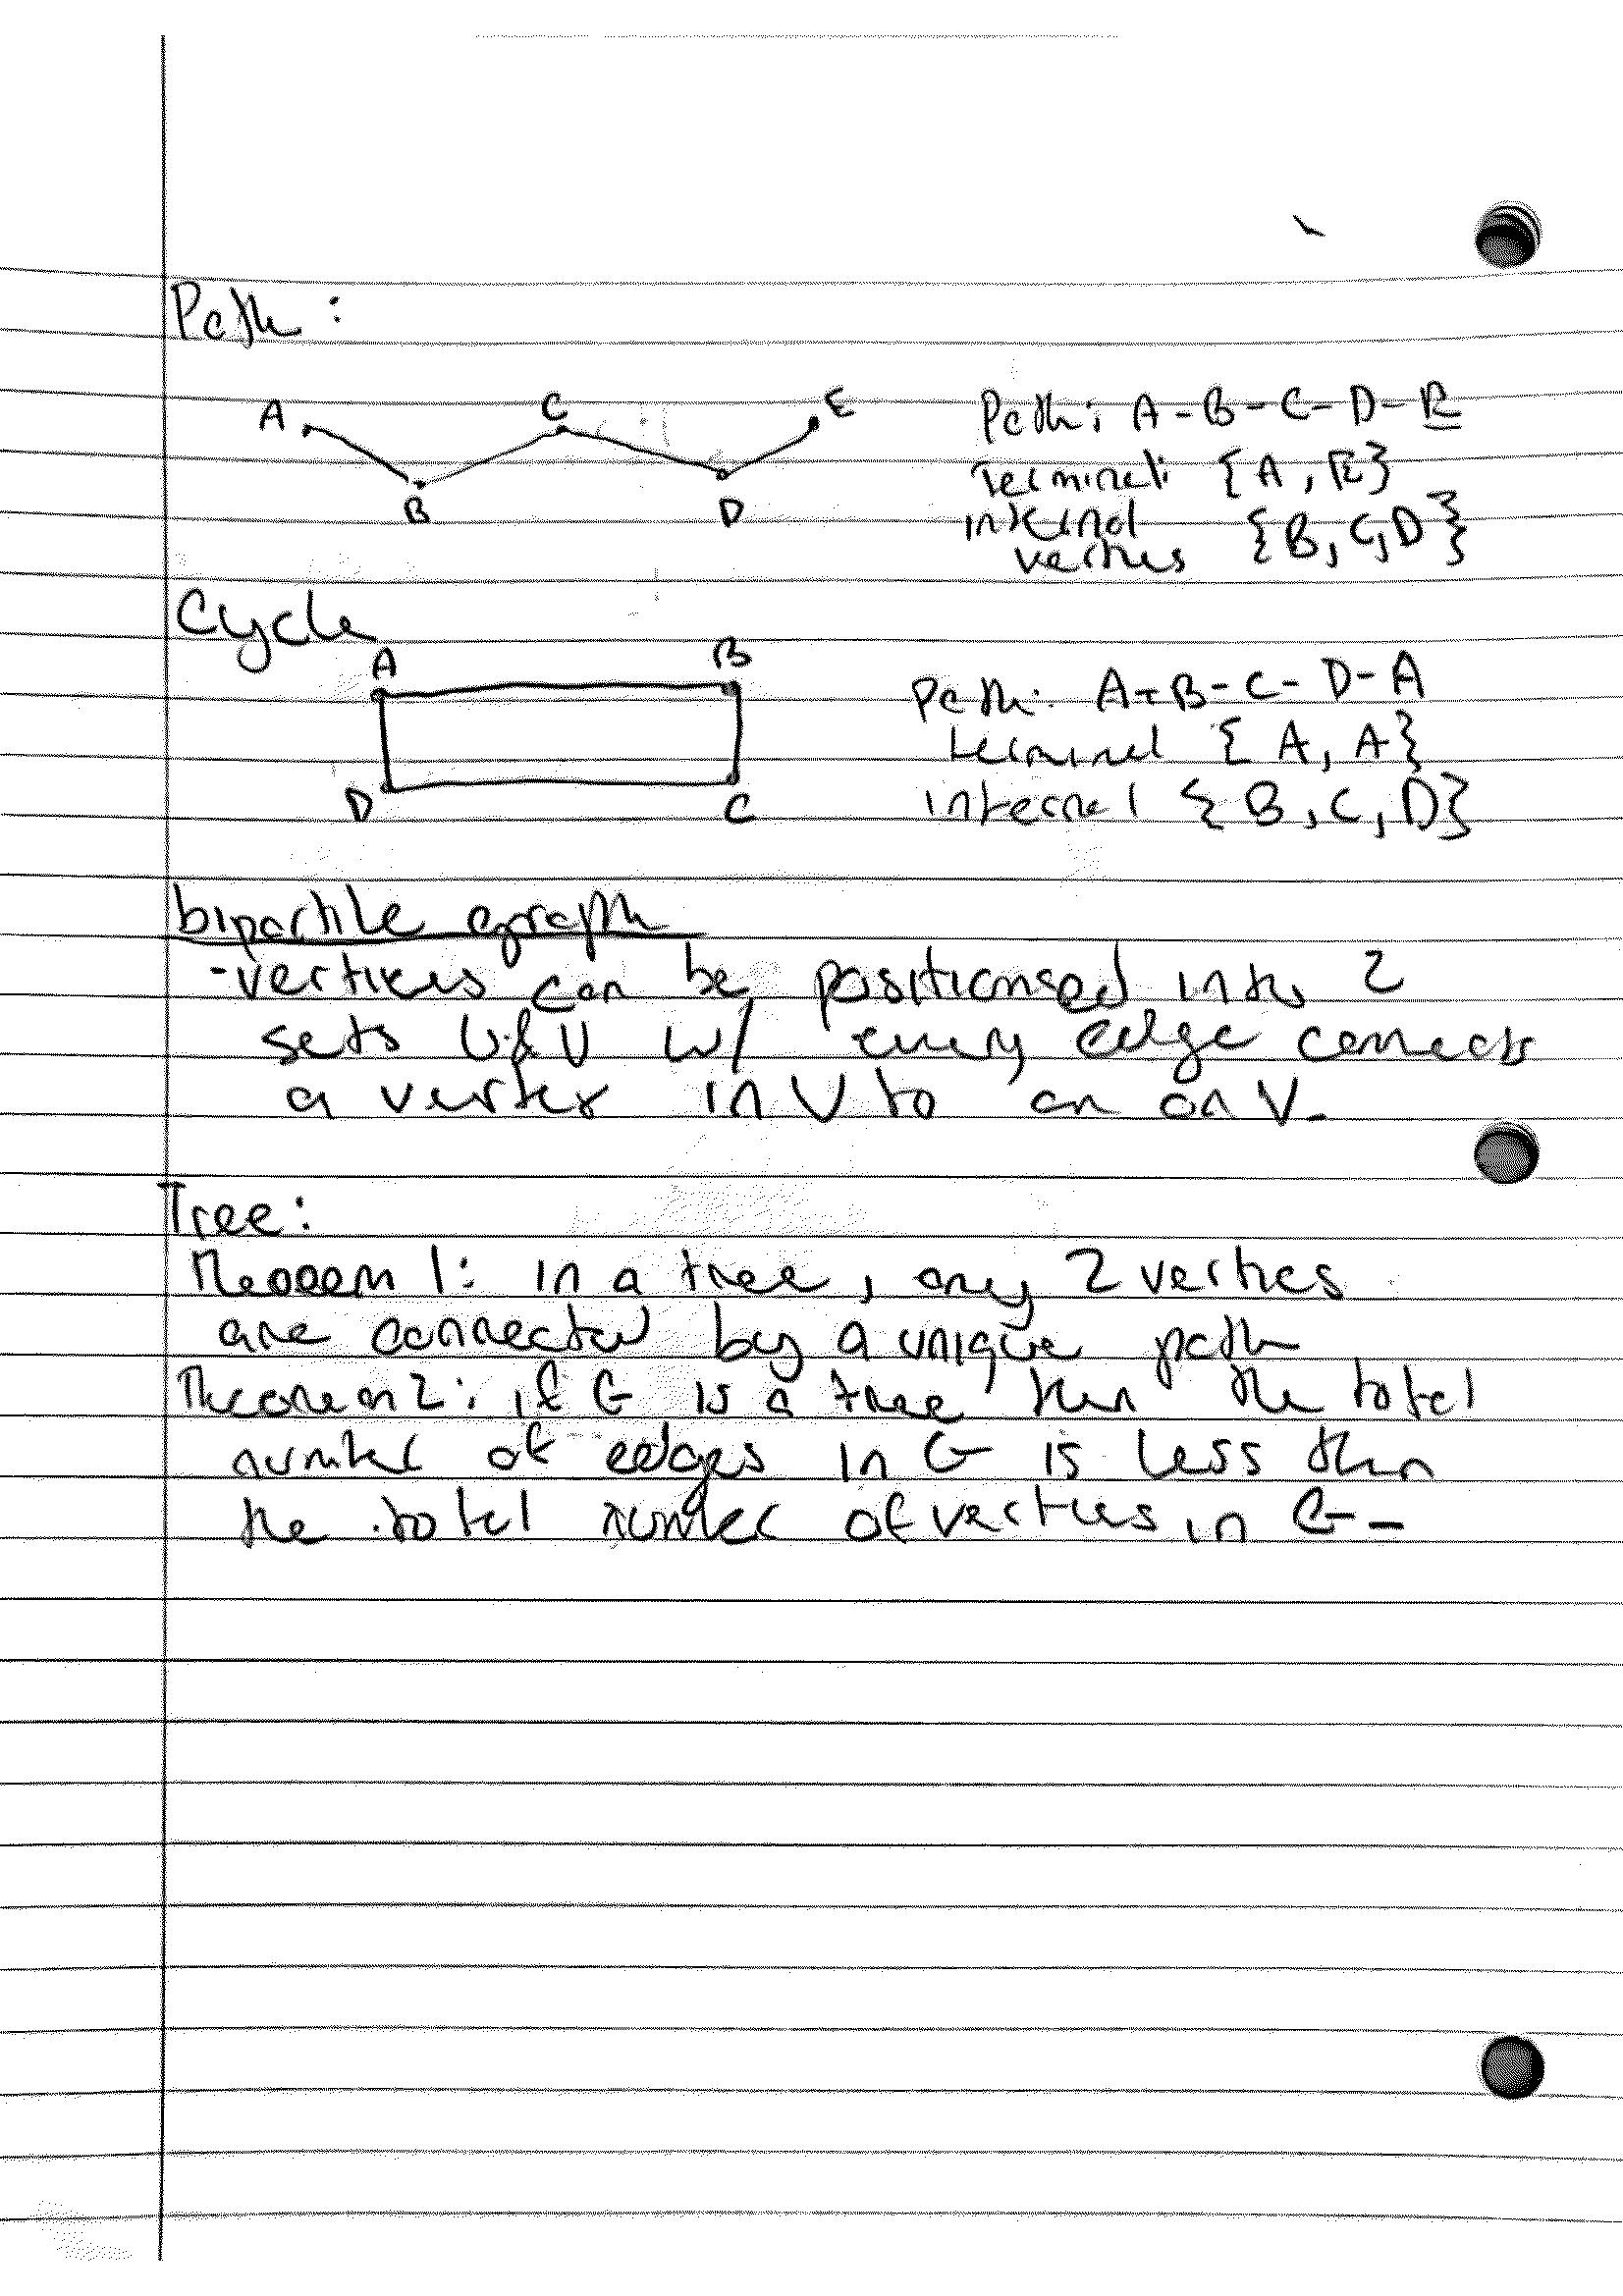 Path :
A C E
B D
Path: A - B - C - D - E
Terminal: {A, E}
internal {B, C, D}
verties
Cycle
A B
D C
Path: A - B - C - D - A
terminal {A, A}
internal {B, C, D}
bipartile graph
- vertices can be positionsed into 2
sets U & V w/ every edge connects
a vertex in U to an on V.
Tree:
Theorem 1: in a tree, any 2 verties
are connected by a unique path
Theorem 2: if G is a tree then the total
number of edges in G is less than
the total number of verties in G -